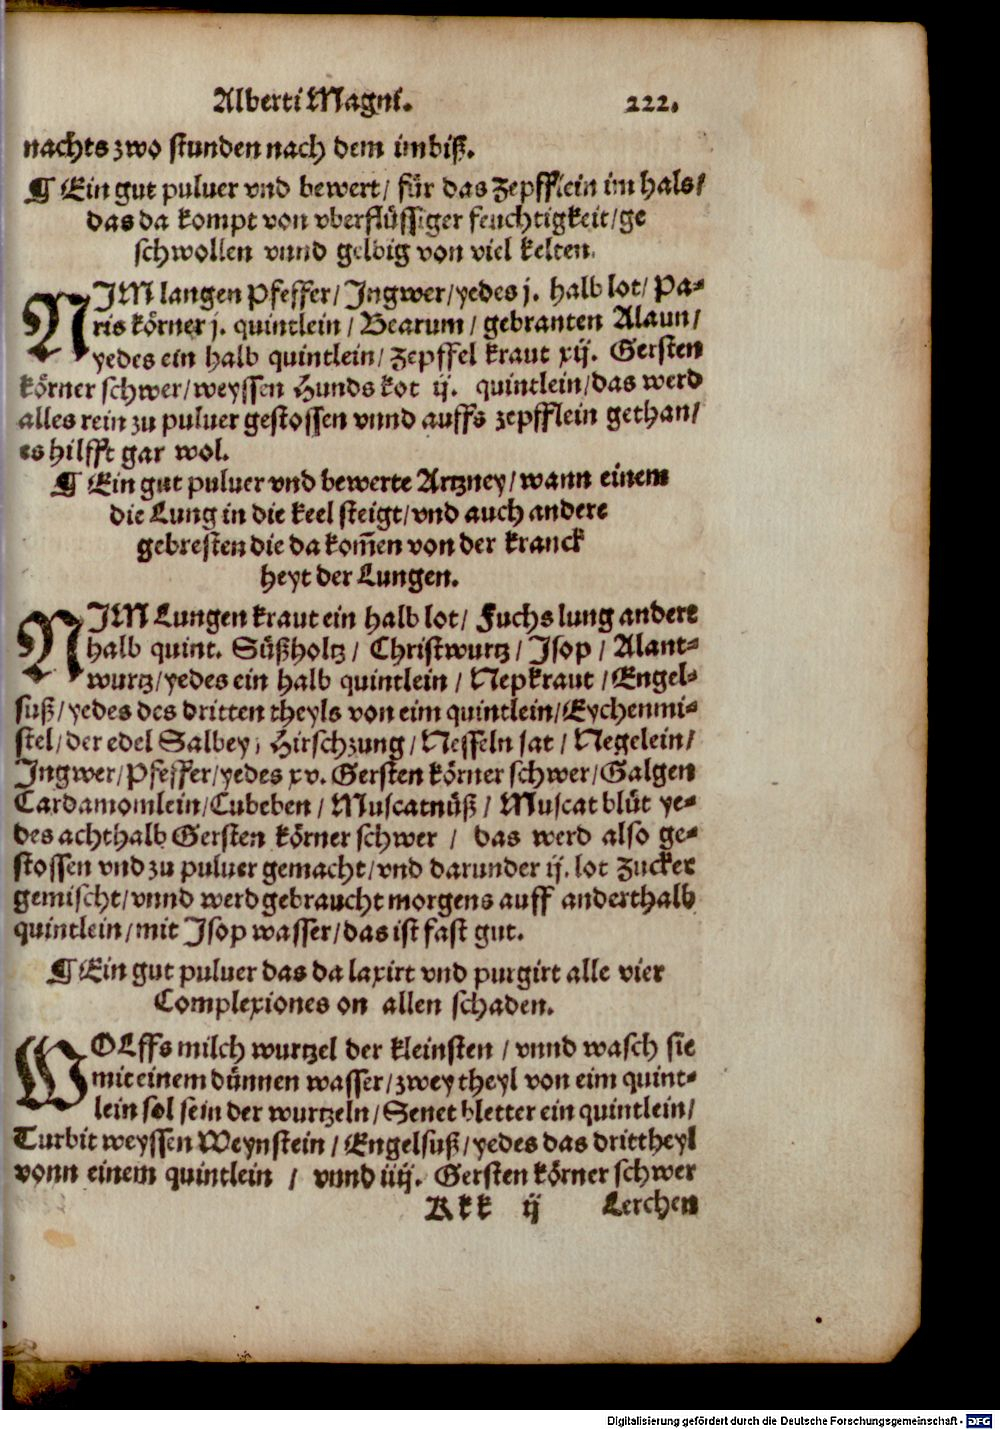 Alberti Magni. 222.
nachts zwo stunden nach dem imbiß.
¶ Ein gut puluer vnd bewert/ für das Zepfflein im hals/
das da kompt von vberflüssiger feuchtigkeit/ge
schwollen vnnd gelbig von viel kelten.
NIM langen Pfeffer/Ingwer/yedes j. halb lot/ Pa-
ris körner j. quintlein / Bearum / gebranten Alaun/
yedes ein halb quintlein/ Zepffel kraut xij. Gersten
körner schwer/weyssen Hunds kot ij. quintlein/das werd
alles rein zu puluer gestossen vnnd auffs zepfflein gethan/
es hilfft gar wol.
¶ Ein gut puluer vnd bewerte Artzney/wann einem
die Lung in die keel steigt/vnd auch andere
gebresten die da kom̃en von der kranck
heyt der Lungen.
NIM Lungen kraut ein halb lot/ Fuchs lung andere
halb quint. Süßholtz / Christwurtz / Isop / Alant-
wurtz/yedes ein halb quintlein / Nepkraut /Engel-
suß/yedes des dritten theyls von eim quintlein/Eychenmi-
stel/der edel Salbey, Hirschzung/Nesseln sat / Negelein/
Ingwer/Pfeffer/yedes xv. Gersten körner schwer/Galgen
Cardamomlein/Cubeben / Muscatnüß / Muscat blüt ye-
des achthalb Gersten körner schwer / das werd also ge-
stossen vnd zu puluer gemacht/vnd darunder ij. lot Zucker
gemischt/vnnd werd gebraucht morgens auff anderthalb
quintlein/mit Isop wasser/das ist fast gut.
¶ Ein gut puluer das da laxirt vnd purgirt alle vier
Complexiones on allen schaden.
WOLffs milch wurtzel der kleinsten / vnnd wasch sie
mit einem dünnen wasser/zwey theyl von eim quint-
lein sol sein der wurtzeln/Senet bletter ein quintlein/
Turbit weyssen Weynstein / Engelsuß/yedes das drittheyl
vonn einem quintlein / vnnd iiij. Gersten körner schwer
Kkk ij Lerchen
Digitalisierung gefördert durch die Deutsche Forschungsgemeinschaft - DFG